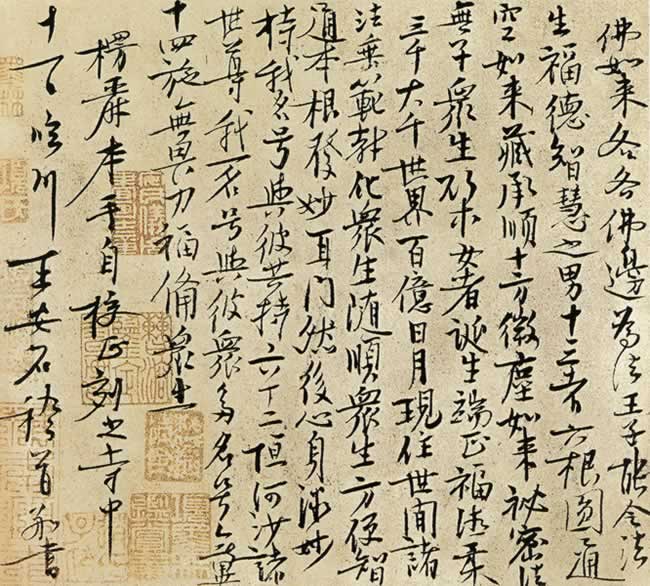 佛如来各各佛邊為法王子能令法
生福德智慧之男十三者六根圓通
空如来藏承順十方微塵如来祕密法
無子衆生欲求女者誕生端正福德柔
三千大千世界百億日月現住世間諸
法垂範教化衆生随順衆生方便智
通本根發妙耳門然後心身微妙
持我名号與彼共持六十二恒河沙諸
世尊我一名号與彼衆多名号無異
十四施無畏力福備衆生
楞嚴本手自校正刻之寺中
十一日臨川王安石稽首敬書